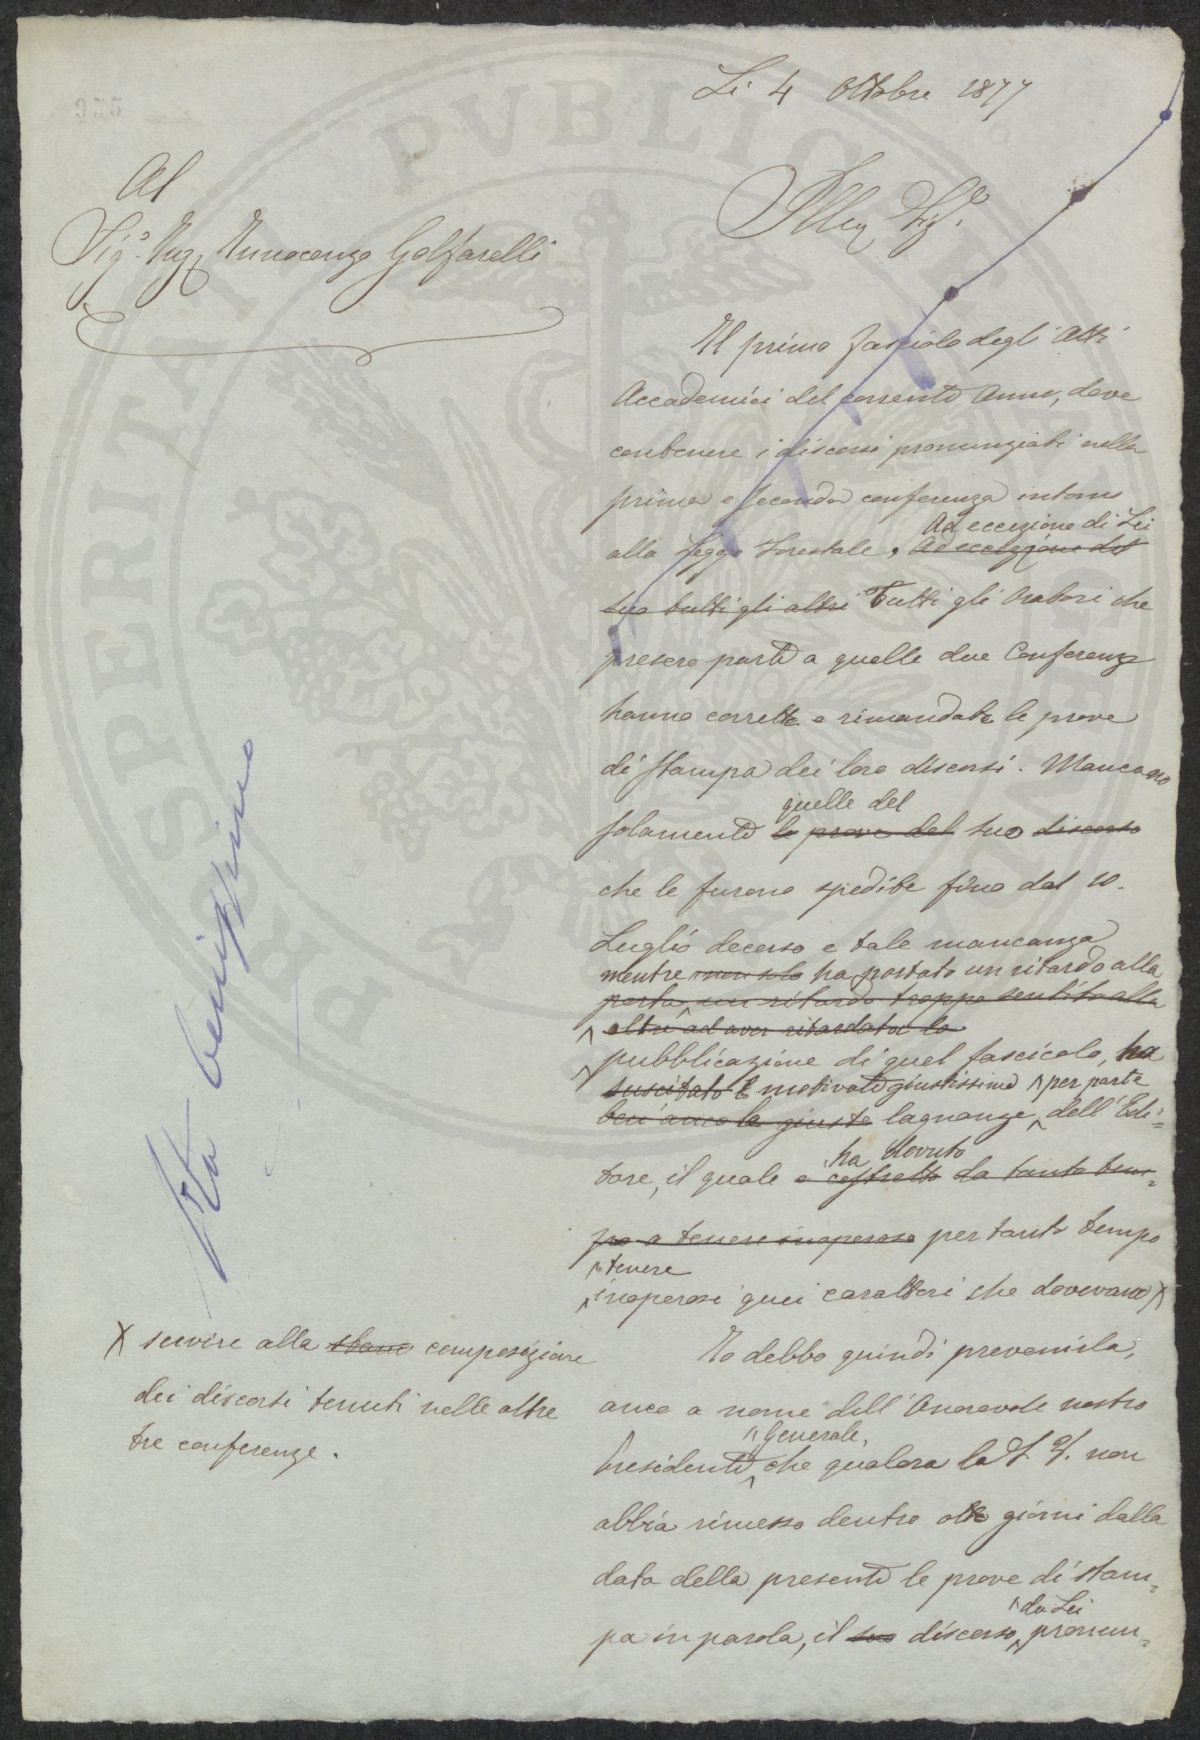 Li 4 Ottobre 1877
Al
Sigr. Ing. Innocenzo Golfarelli
Illmo Sigr.
Il primo fascicolo degli Atti
Accademici del corrente Anno, deve
contenere i discorsi pronunziati nella
prima e seconda conferenza intorno
Ad eccezione di Lei
alla Legge Forestale. Ad eccezione del
suo tutti gli altri Tutti gli Oratori che
presero parte a quelle due Conferenze
hanno corrette e rimandate le prove
di stampa dei loro discorsi. Mancano
quelle del
solamente le prove del suo discorso
che le furono spedite fino dal 10.
Luglio decorso e tale mancanza
mentre non solo ha portato un ritardo alla
porta un ritardo troppo sentito alla
oltre ad aver ritardata la
pubblicazione di quel fascicolo, ha
suscitato E motivato giustissime per parte
ben anco le giuste lagnanze dell'Edi=
ha dovuto
tore, il quale è costretto da tanto tem=
po a tenere inoperose per tanto tempo
tenere
inoperosi quei caratteri che dovevano X
X servire alla stam composizione
dei discorsi tenuti nelle altre
tre conferenze.
Io debbo quindi prevenirla,
anco a nome dell'Onorevole nostro
Generale,
Presidente che qualora la S. V. non
abbia rimesso dentro otto giorni dalla
data della presente le prove di stam=
da Lei
pa in parola, il suo discorso pronun=
PERITAT PUBLIC